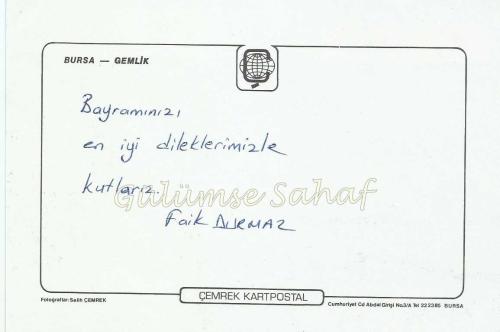 BURSA — GEMLİK
Bayramınızı
en iyi dileklerimizle
kutlarız.
Gülümse Sahaf
Faik DURMAZ
Fotoğraflar: Salih ÇEMREK
ÇEMREK KARTPOSTAL
Cumhuriyet Cd Abdal Girişi No.3/A Tel 22 23 85 BURSA